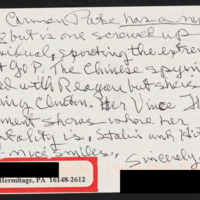 Carmen Pate has a ni
but is one screwed up
idual, spouting the extrem
t GOP. The Chinese spying
ed with Reagan but she is
ing Clinton. Her Vince
ment shows where her
tality is, Stalin and Hi
nice smiles.
Sincerely,
Hermitage, PA 16148-2612